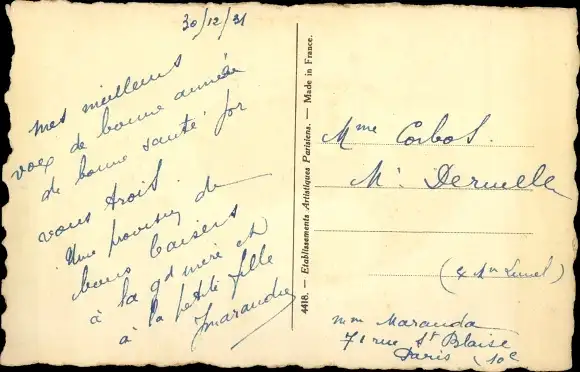 30/12/31
Mes meilleurs
voex de bonne année
de bonne santé por
vous trois.
Une provision de
bons baisers
à la gd mère et
à la petite fille
Maranda
4418. — Etablissements Artistiques Parisiens. — Made in France.
Mme Corbot.
Mr Deruelle
Mme Maranda
71 rue St Blaise
Paris